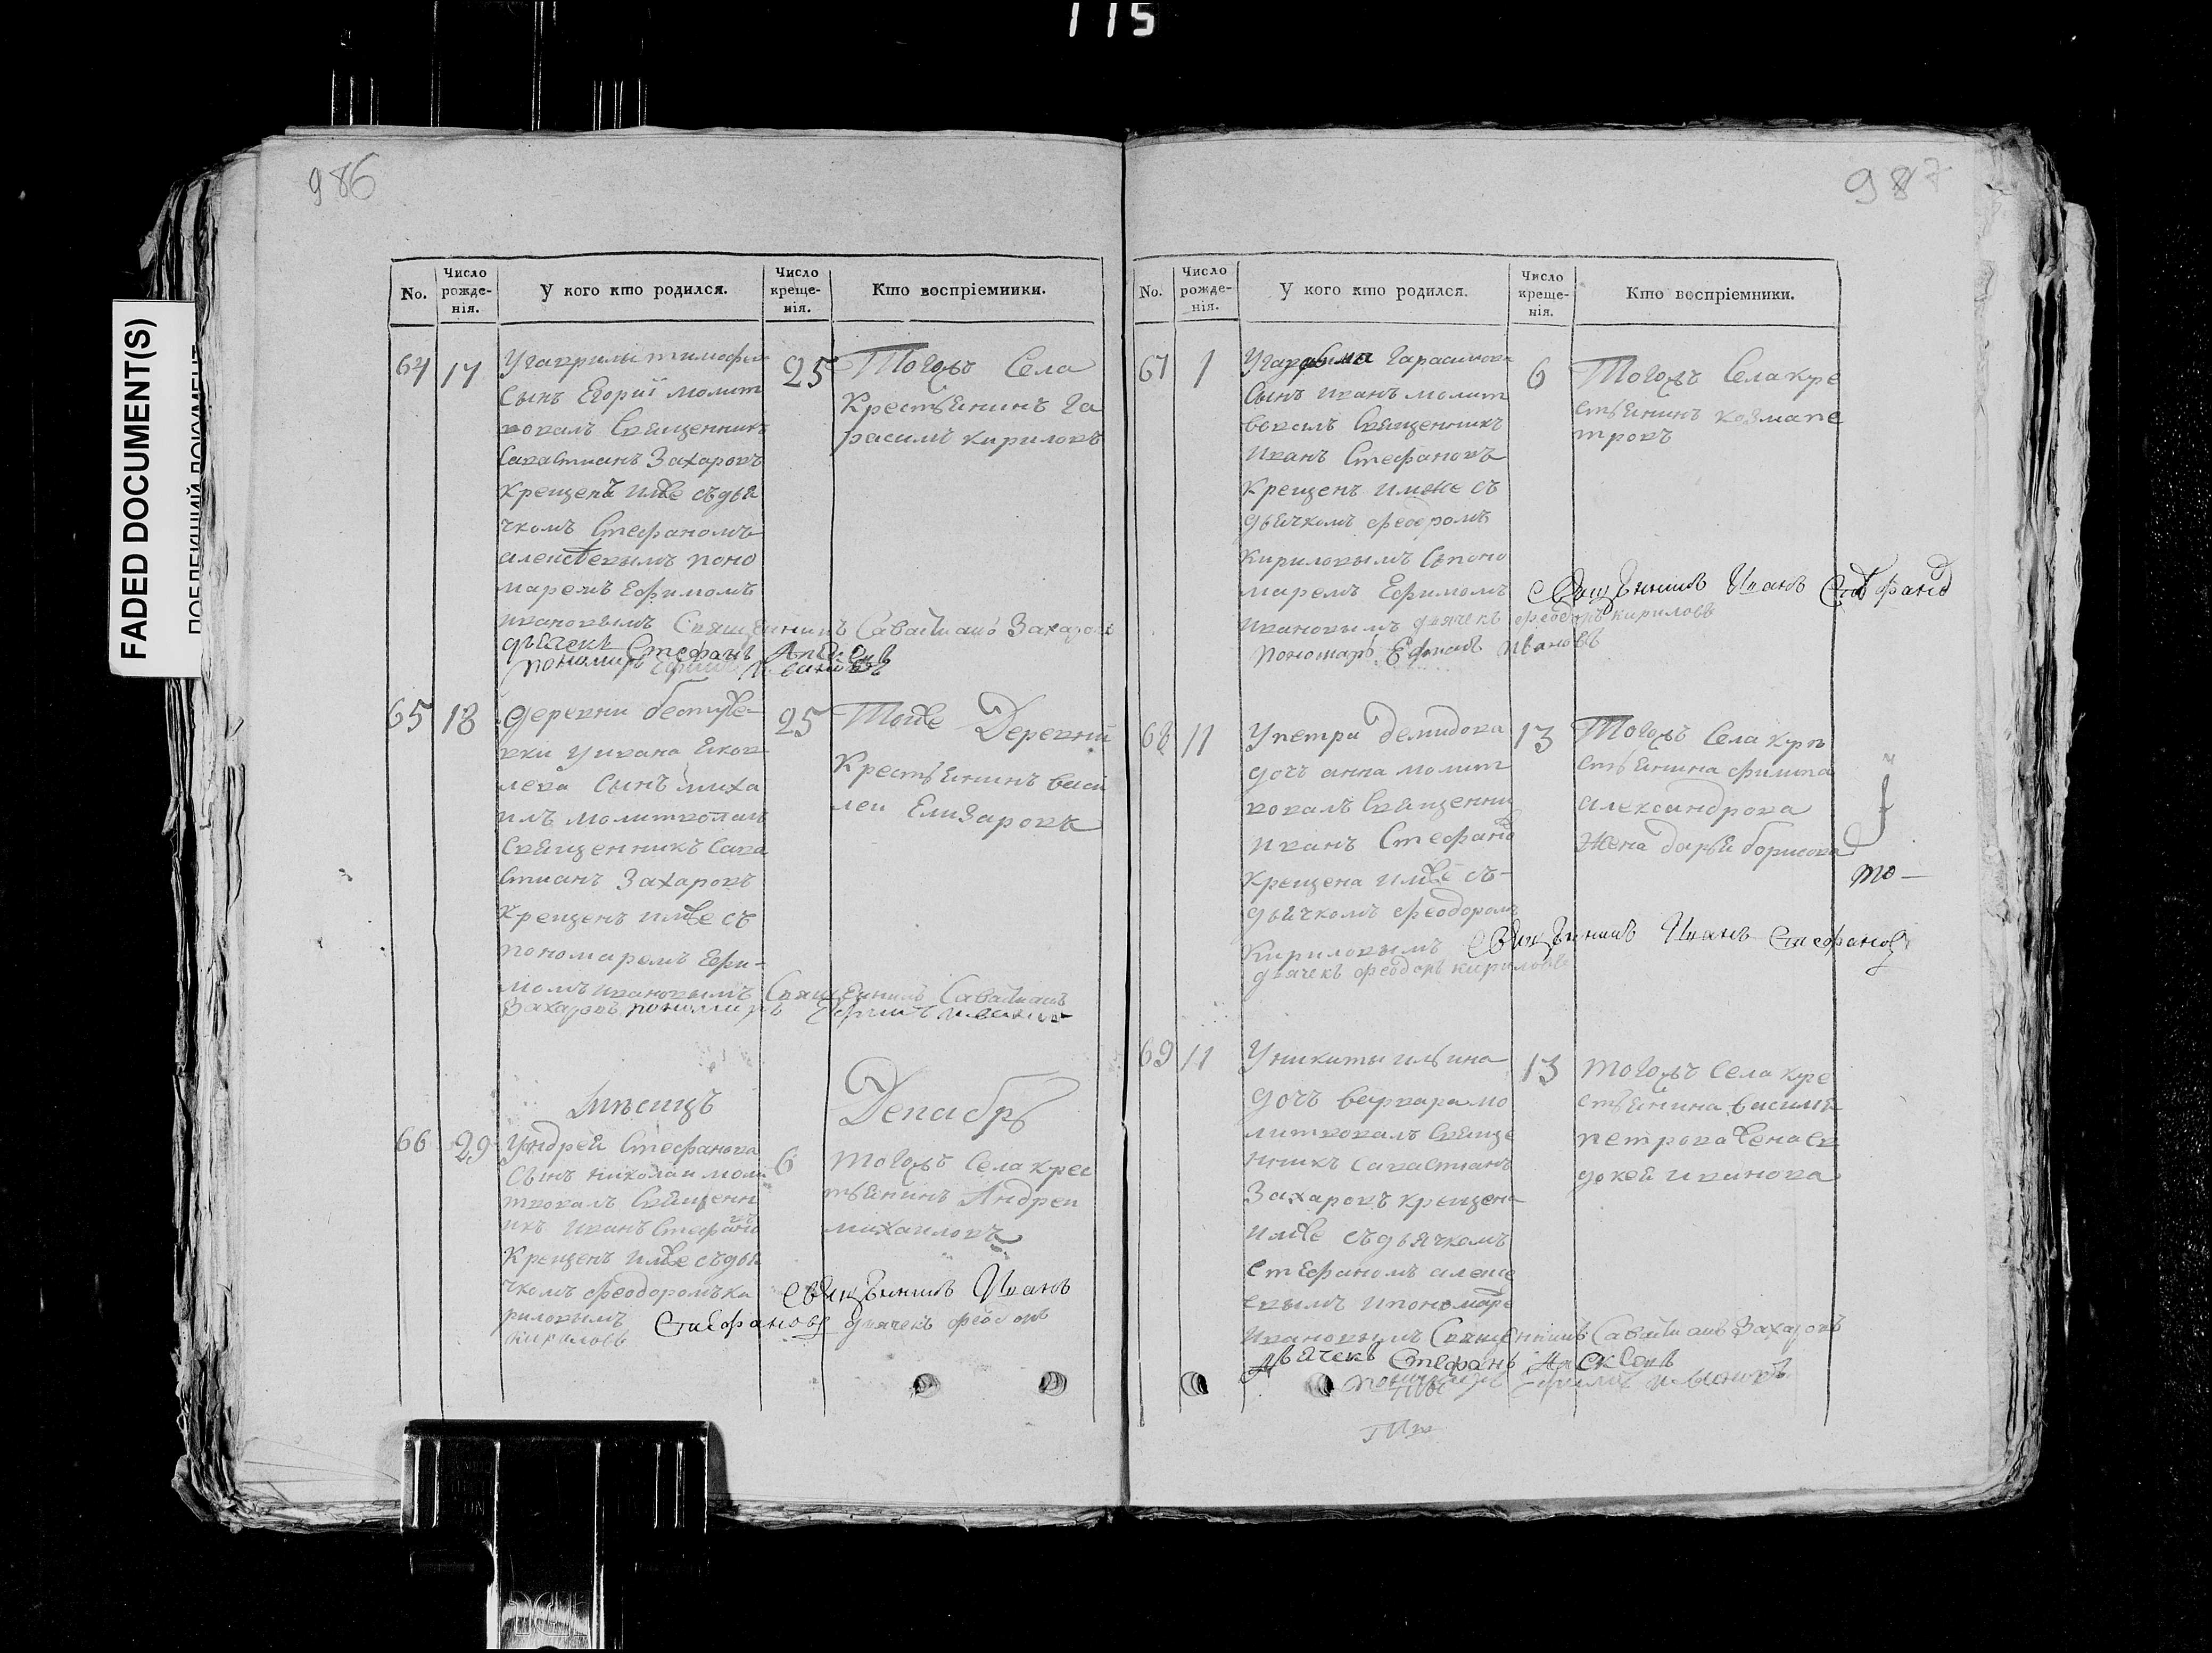 115
FADED DOCUMENT(S)
986
No.
Число рожде-нія.
У кого кто родился.
Число креще-нія.
Кто воспріемники.
64
17
Угаврилы тимофе
сынъ Егорій молит
вовалъ Священникъ
Савастианъ Захаровъ
крещенъ имже съдья
чкомъ Стефаномъ
алексѣевымъ поно
маремъ Ефимомъ
ивановымъ Священникъ Саватианъ Захаровъ
дьячекъ Стефанъ Алексѣевъ
пономарь Ефимъ Ивановъ
25
Тогожъ Села
Крестьянинъ Га
расимъ кириловъ
65
18
деревни
вки уивана Яков
лева сынъ миха
илъ молитвовалъ
Священникъ Сава
стианъ Захаровъ
Крещенъ имже съ
пономаремъ Ефи-
момъ ивановымъ Священникъ Саватианъ
Захаровъ пономарь Ефимъ ивановъ
25
Тойже Деревни
Крестьянинъ васи
леи Елизаровъ
Мѣсяцъ Декабрь
66
29
Уандрея Стефанова
сынъ николаи моли
твовалъ Священн
икъ иванъ Стефановъ
Крещенъ имже съдья
чкомъ феодоромъ ки
риловымъ
6
тогожъ Села крес
тьянинъ Андреи
михаиловъ
Священникъ Иванъ
Стефановъ дьячекъ феодоръ
кириловъ
987
No.
Число рожде-нія.
У кого кто родился.
Число креще-нія.
Кто воспріемники.
67
1
Гарасимова
сынъ иванъ молит
вовалъ Священникъ
Иванъ Стефановъ
Крещенъ имже съ
дьячкомъ феодромъ
Кириловымъ Съпоно
маремъ Ефимомъ
ивановымъ дьячекъ феодоръ кириловъ
пономарь Ефимъ Ивановъ
6
Тогожъ Села кре
стьянинъ козма пе
тровъ
Священникъ Иванъ Стефановъ
68
11
Упетра демидова
дочь анна молит
вовалъ Священни
иванъ Стефановъ
Крещена имже съ-
дьячкомъ феодоромъ
Кириловымъ Священникъ Иванъ Стефановъ
дьячекъ феодоръ кириловъ
13
Тогожъ Села кре
стьянина филипа
александрова
Жена дарья борисова
то-
69
11
Уникиты ильина
дочь варвара мо
литвовалъ Священ
нникъ Савастианъ
Захаровъ крещена
имже съдьячкомъ
Стефаномъ алексе
евымъ ипономаре
ивановымъ Священникъ Саватианъ Захаровъ
Дьячекъ Стефанъ Алексеевъ
пономарь Ефимъ ивановъ
13
тогожъ Села кре
стьянина василья
петрова жена ев
докея иванова